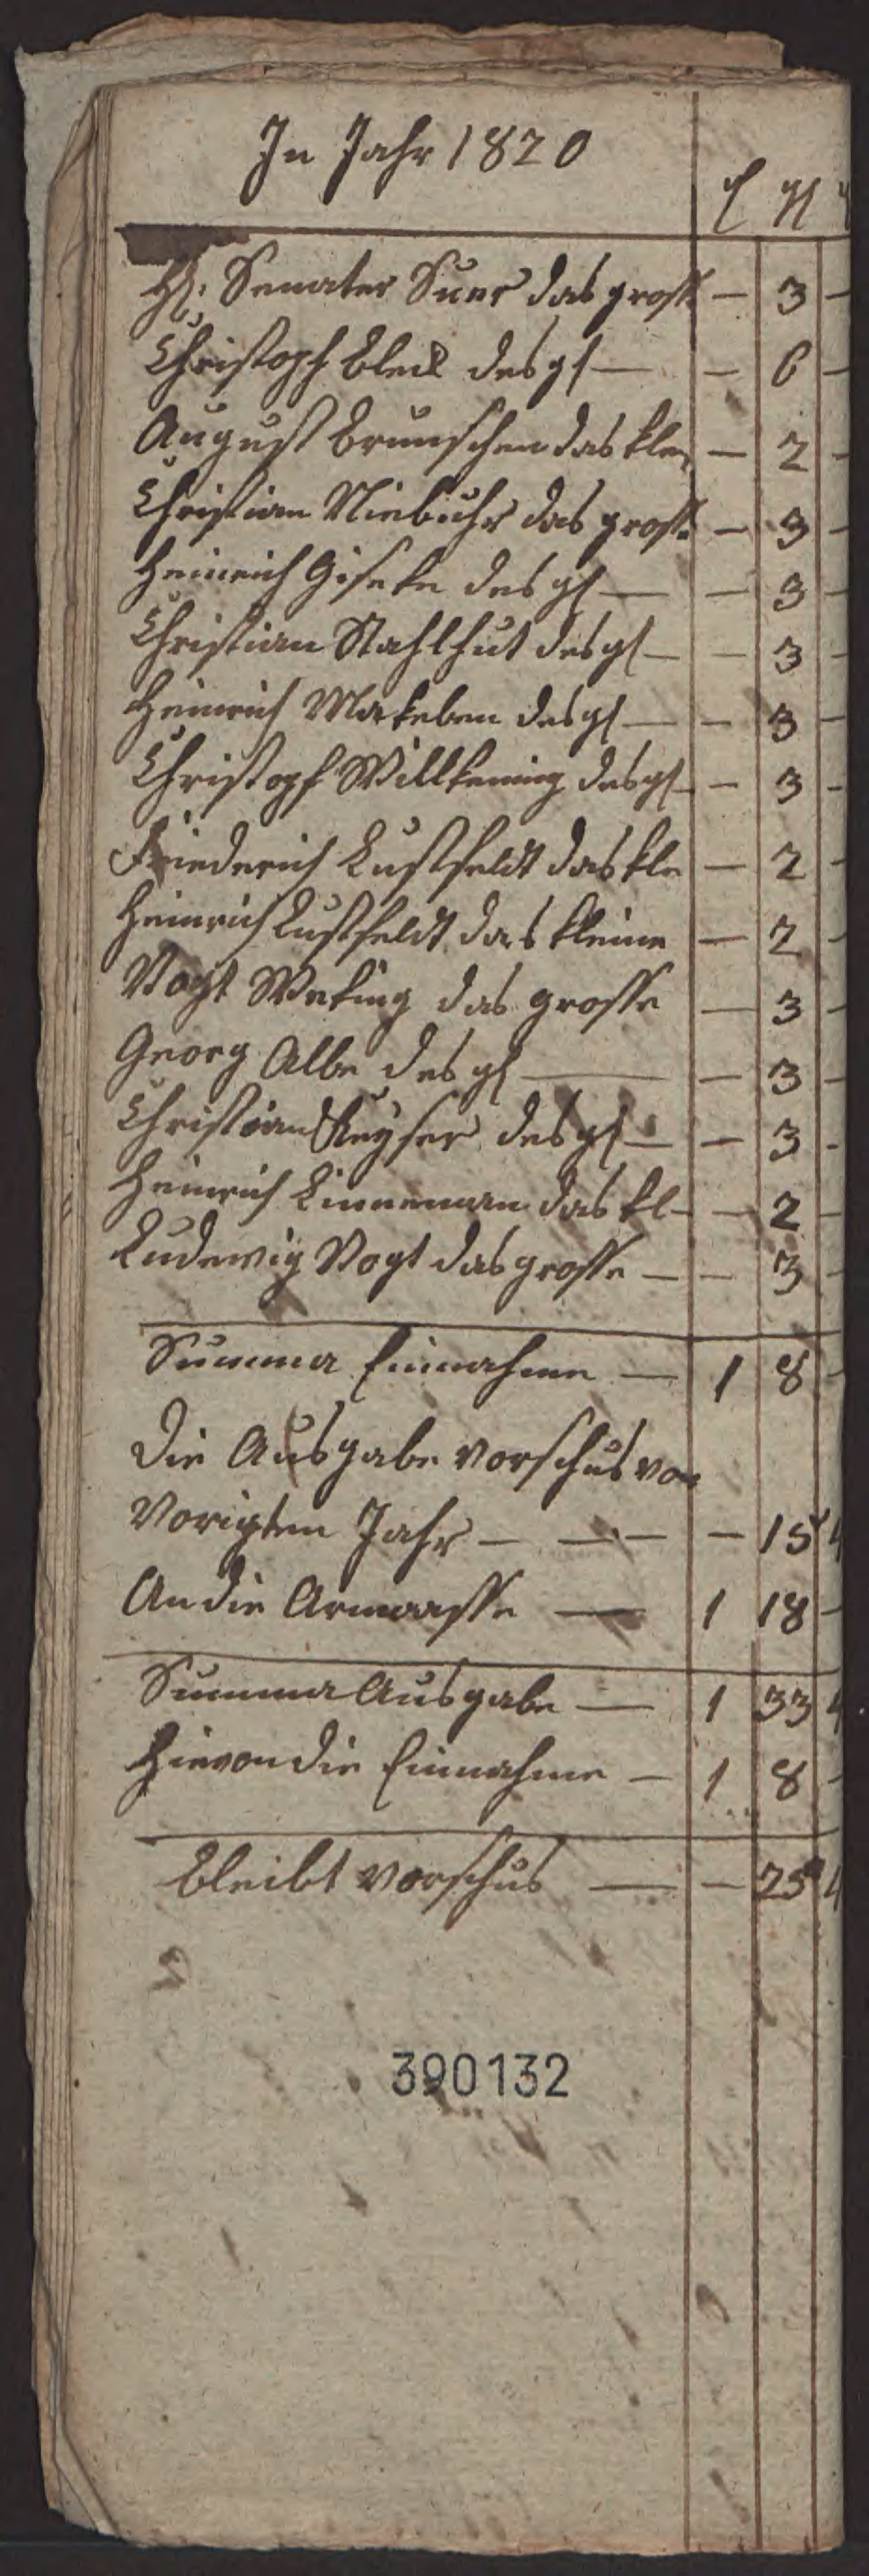 In Jahr 1820
rl gl
H. Senater Suer das grosse — 3 —
Christoph Bleck desgl — — 6 —
August Brunschen das kle — 2 -
Christian Niebuhr das grosse — 3 -
Heinrich Giseke desgl — — 3 -
Christian Stahlhut desgl — — 3 -
Heinrich Makeben desgl — — 3 -
Christoph Willkening desgl — — 3 -
Friederich Lustfeldt das kle — 2 -
Heinrich Lustfeldt das kleine — 2 -
Vogt Weking das grosse — 3 -
Georg Albe desgl — — 3 -
Christian Keyser desgl — — 3 -
Heinrich Linneman das kl — — 2 -
Ludewig Vogt das grosse — — 3 -
Summa Einnahme — 1 8 -
Die Ausgabe vorschus von
Vorigten Jahr — — — — 15 4
An die Armcasse — 1 18 -
Summa Ausgabe — 1 33 4
Hievon die Einnahme — 1 8 -
bleibt vorschus — — 25 4
390132